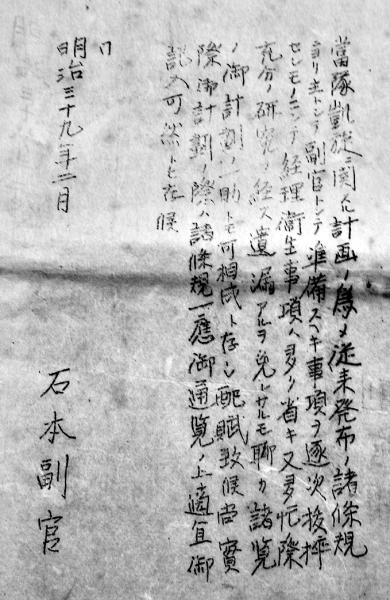 當隊凱旋ニ関スル計画ノ為メ従来発布ノ諸條規
ヨリ主トシテ副官トシテ準備スヘキ事項ヲ逐次抜抨
セシモノニシテ経理衛生事項ハ多ク省キ又多忙際
充分ノ研究ヲ経ス遺漏アルヲ免レサルモ聊カ諸覧
ノ御計劃ノ一助トモ可相成ト存シ配賦致候尚實
際御計劃ノ際ハ諸條規一應御通覧ノ上適宜御
訂又可然トモ存候
明治三十九年二月
石本副官